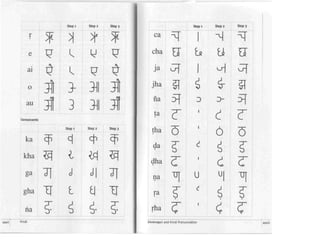 Step 1 Step 2 Step 3
ṛ ऋ
e ए ए ए
ai ऐ ए ऐ
o ओ ओ
au औ औ
Consonants
Step 1 Step 2 Step 3
ka क व क क
kha ख ख ख
ga ग ग ग
gha घ घ घ
ṅa ङ ङ ङ
Hindi
Step 1 Step 2 Step 3
ca च च च
cha छ छ छ
ja ज ज ज
jha झ झ झ
ña ञ ञ
ṭa ट ट ट
ṭha ठ ठ ठ
ḍa ड ड ड
ḍha ढ ढ ढ
ṇa ण ण ण
ṛa ड़ ड ड़
ṛha ढ़ ढ ढ़
Devanagari and Hindi Pronunciation